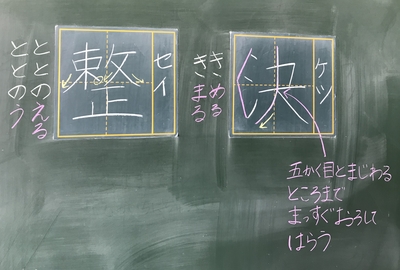 決
ケツ
きめる
きまる
五かく目とまじわる
ところまで
まっすぐおろして
はらう
整
セイ
ととのえる
ととのう